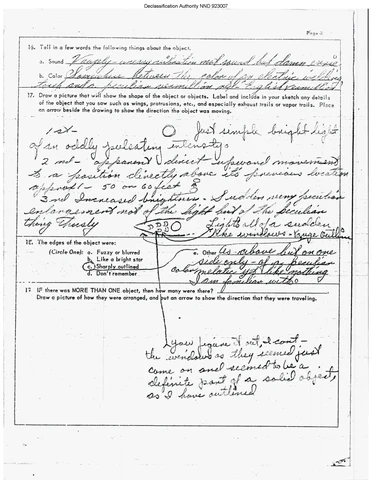 Declassification Authority NND 923007
Page 3
16. Tell in a few words the following things about the object.
a. Sound Vaguely uneasy vibration not sound but damn eerie
b. Color Somewhere between the color of an electric welding
torch and a peculiar vermilion
17. Draw a picture that will show the shape of the object or objects. Label and include in your sketch any details
of the object that you saw such as wings, protrusions, etc., and especially exhaust trails or vapor trails. Place
an arrow beside the drawing to show the direction the object was moving.
1st - Just simple bright light
of an oddly pulsating intensity.
2nd - apparent direct upward movement
to a position directly above its previous location
approx 1 - 50 or 60 feet
3rd Increased brightness - Sudden
not of the light but of the peculiar
thing
Lights all of a sudden
the windows - huge
18. The edges of the object were:
(Circle One): a. Fuzzy or blurred
b. Like a bright star
c. Sharply outlined
d. Don't remember
e. Other As above but on one
side only - of a peculiar
color metallic yet like nothing
I am familiar with
19. IF there was MORE THAN ONE object, then how many were there?
Draw a picture of how they were arranged, and put an arrow to show the direction that they were traveling.
you figure it out, I cant -
the windows as they seemed just
come on and seemed to be a
definite part of a solid object,
as I have outlined